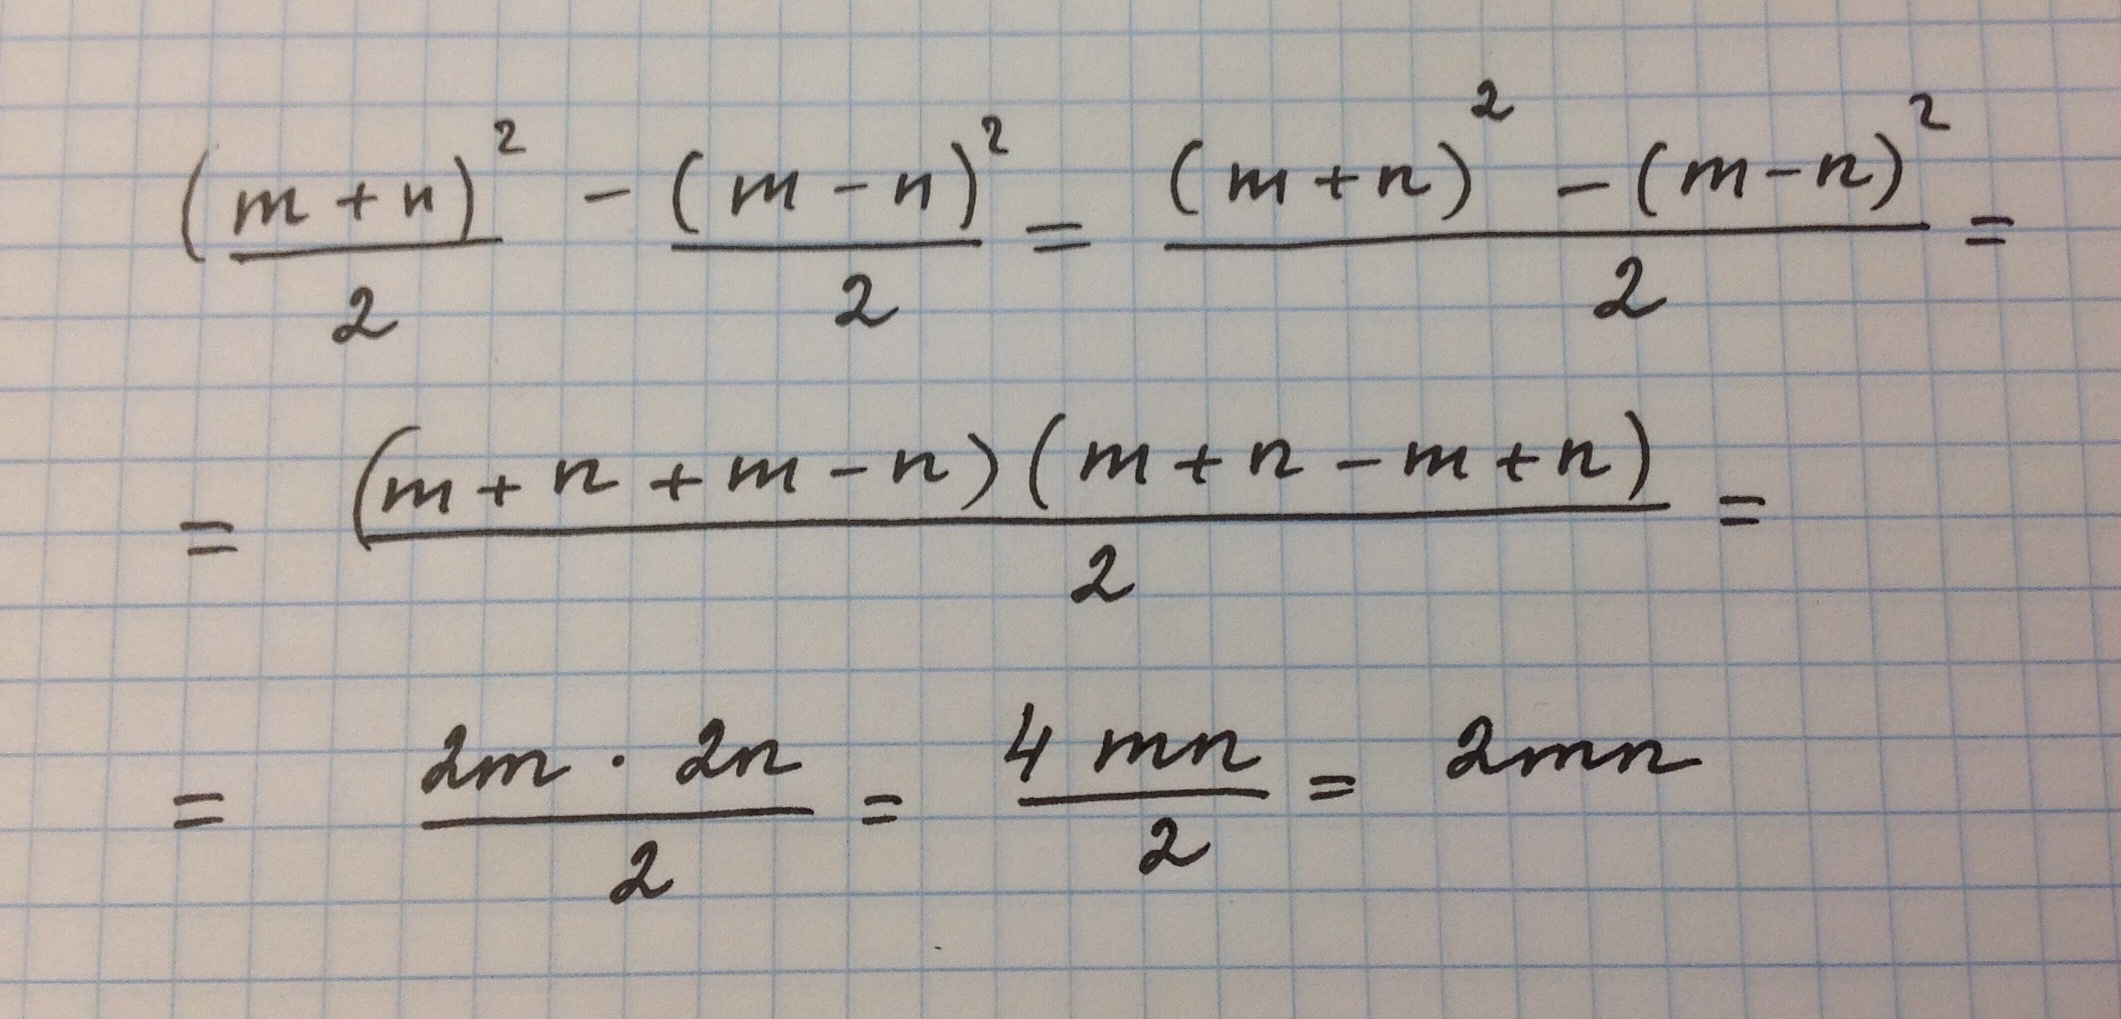 (m + n)²/2 - (m - n)²/2 = ((m + n)² - (m - n)²)/2 =
= (m + n + m - n)(m + n - m + n)/2 =
= 2m · 2n/2 = 4mn/2 = 2mn